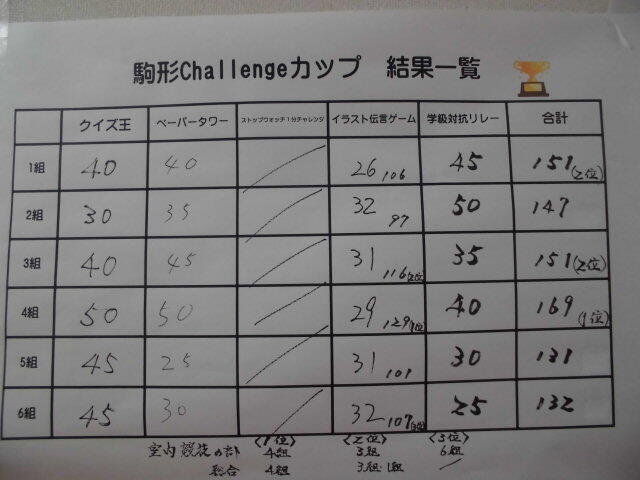 駒形Challengeカップ 結果一覧
クイズ王 ペーパータワー ストップウォッチ1分チャレンジ イラスト伝言ゲーム 学級対抗リレー 合計
1組 40 40 26 106 45 151(2位)
2組 30 35 32 97 50 147
3組 40 45 31 116(2位) 35 151(2位)
4組 50 50 29 129(1位) 40 169(1位)
5組 45 25 31 101 30 131
6組 45 30 32 107(3位) 25 132
〈1位〉 〈2位〉 〈3位〉
室内競技の部 4組 3組 6組
総合 4組 3組・1組